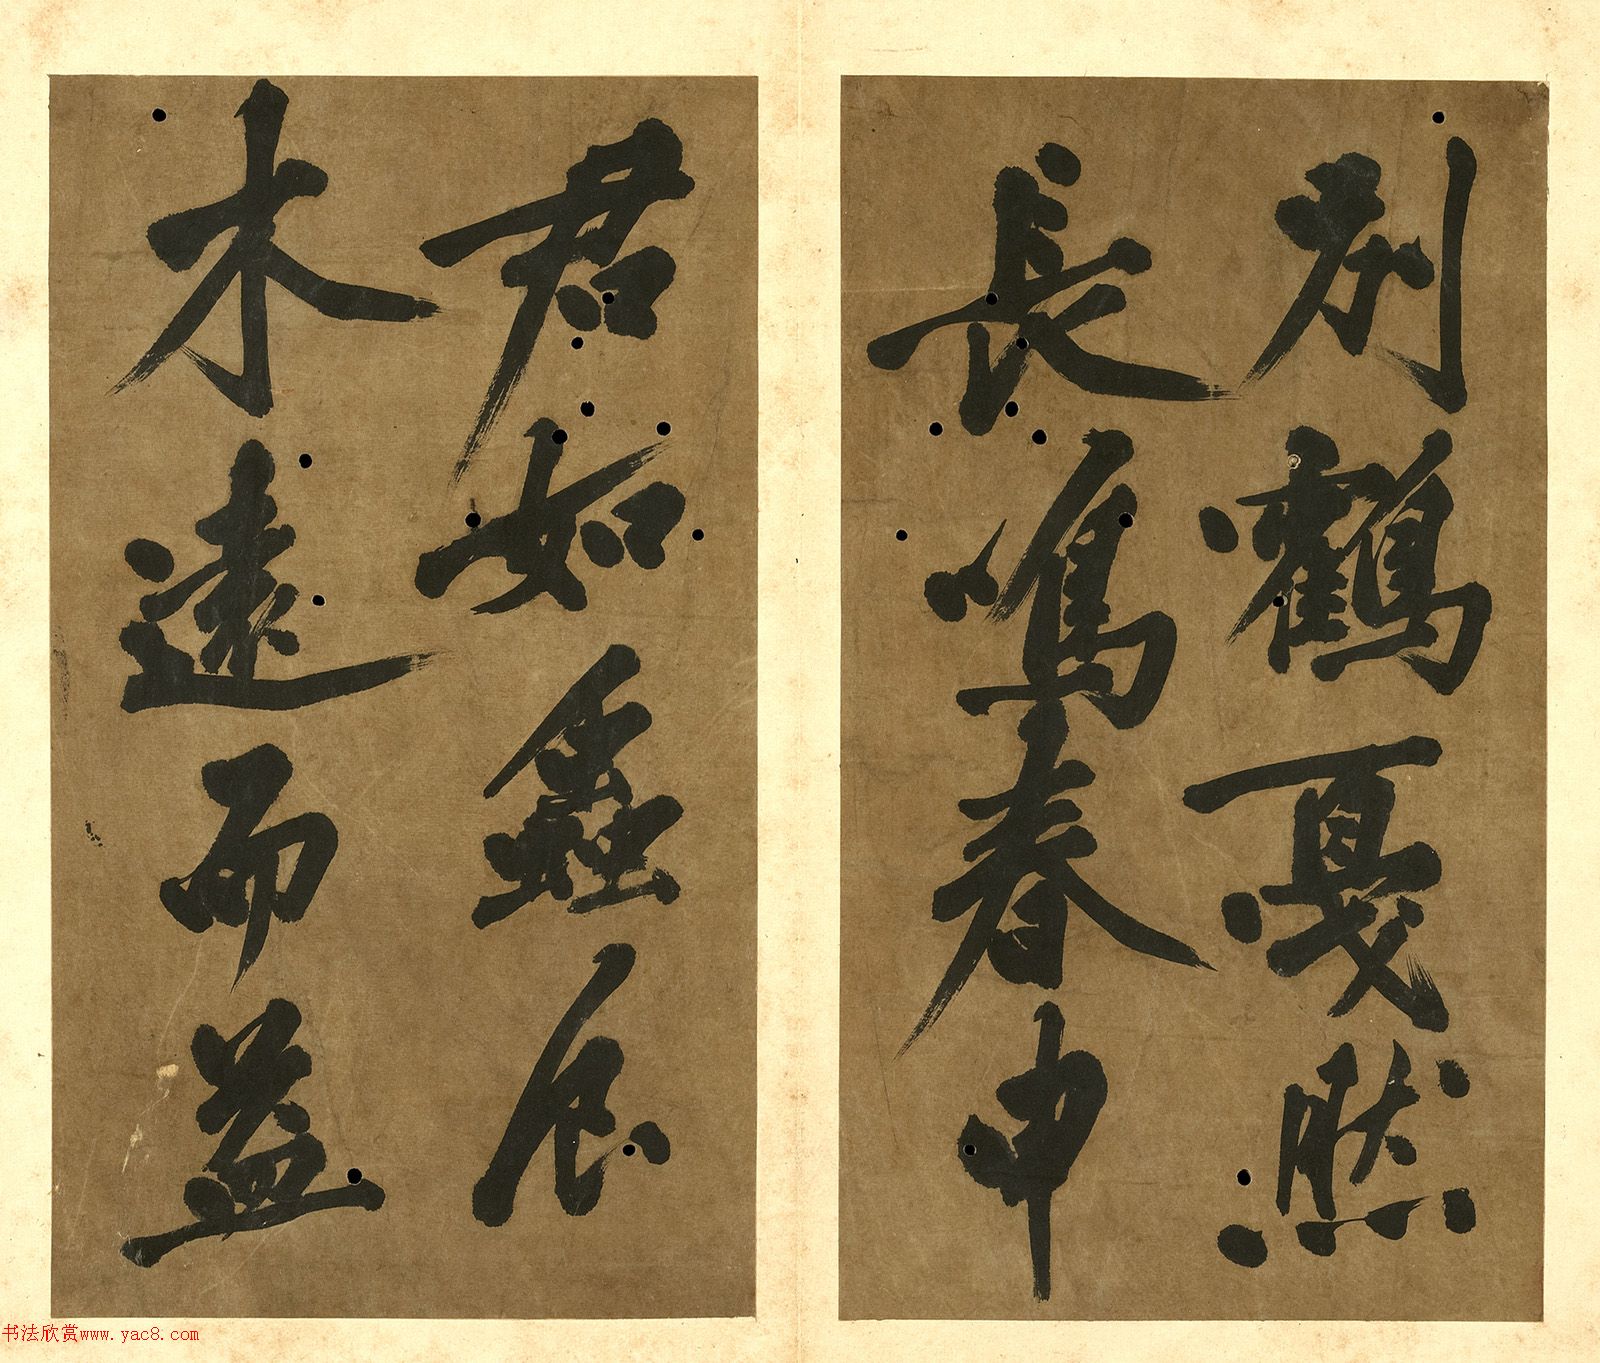 別鶴戛然
長鳴春申
君如蠡食
木遠而益
书法欣赏www.yac8.com